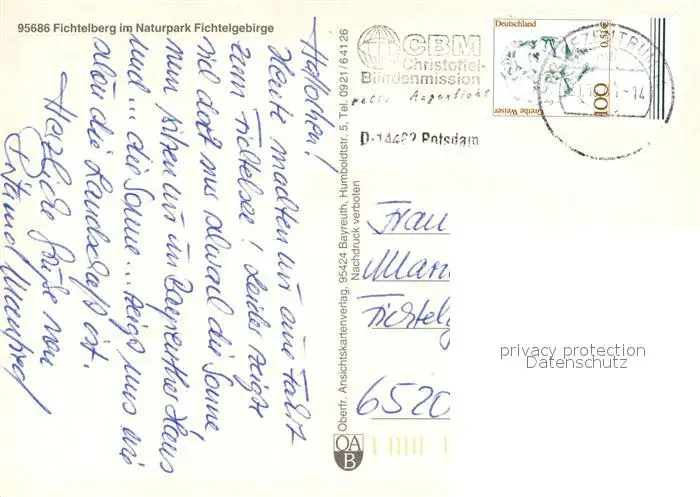 95686 Fichtelberg im Naturpark Fichtelgebirge
Hallöchen!
Heute machten wir eine Fahrt
zum Fichtelsee! Leider zeigt
sich dort nur die Sonne,
nun sitzen wir im Bayreuther Haus
und ... die Sonne ... zeigt uns wie
schön die Landschaft ist.
Herzliche Grüße von
Manfred
Oberfr. Ansichtskartenverlag, 95424 Bayreuth, Humboldtstr. 5, Tel. 0921/64126
Nachdruck verboten
OA
B
CBM
Christoffel-
Blindenmission
rettet Augenlicht
D-14482 Potsdam
Deutschland
0,51€
100
Grethe Weiser
Frau
Mari
Fichtelg
6520
privacy protection
Datenschutz